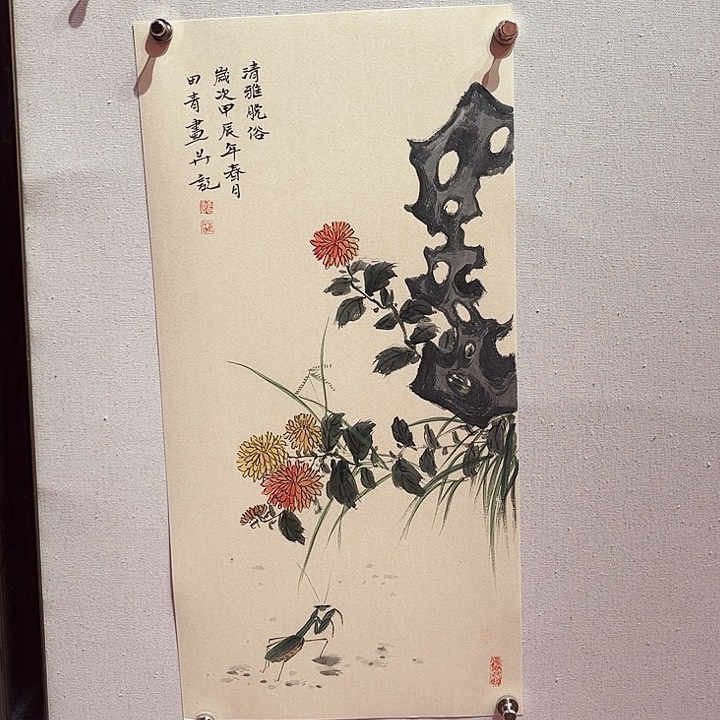 清雅脱俗
歲次甲辰年春日
田青畫并記